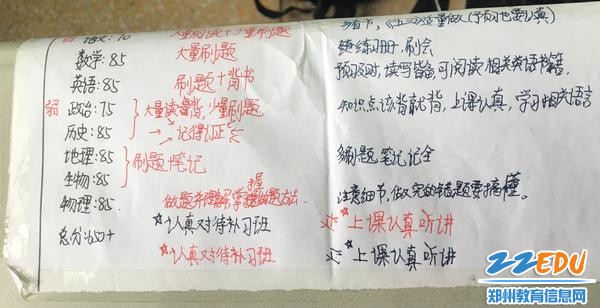 弱 语文:70 大量阅读+少量刷题
多看书,《五三》适量做(预习也要认真)
数学:85 大量刷题
练习册,刷会
英语:85 刷题+背书
预习及时,读写皆备,可阅读相关英语书籍.
弱 政治:75 大量读背,少量刷题
知识点该背就背,上课认真,学习相关语言
历史:85 →记得认证
地理:85 刷题 笔记
多刷题 笔记记全
生物:85
握
物理:85. 做题并理解掌握做题方法.
注意细节,做完的错题要搞懂。
总分:650+ ☆认真对待补习班
☆上课认真听讲
☆认真对待补习班
☆上课认真听讲
22EDU
郑州教育信息网